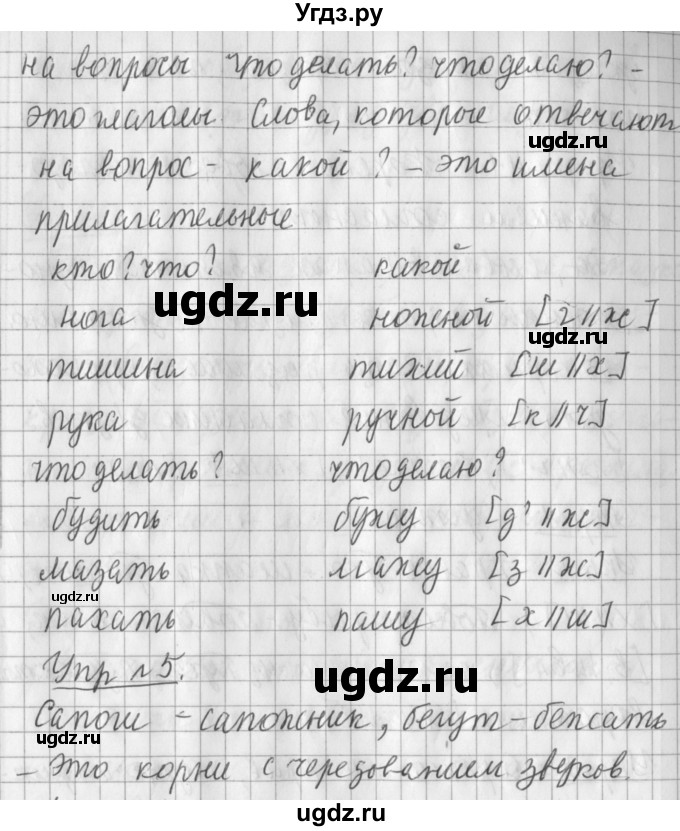 Угдз.ру
на вопросы что делать? что делаю? -
это глаголы. Слова, которые отвечают
ugdz.ru
на вопрос - какой? - это имена
прилагательные
кто? что? какой
ugdz.ru
нога ножной [г//ж]
ugdz.ru
тишина тихий [ш//х]
рука ручной [к//ч]
что делать? что делаю?
будить бужу [д'//ж]
ugdz.ru
мазать мажу [з//ж]
ugdz.ru
пахать пашу [х//ш]
Упр №5.
ugdz.ru
Сапоги - сапожник, бегут - бежать
ugdz.ru
- Это корни с чередованием звуков.
ugdz.ru